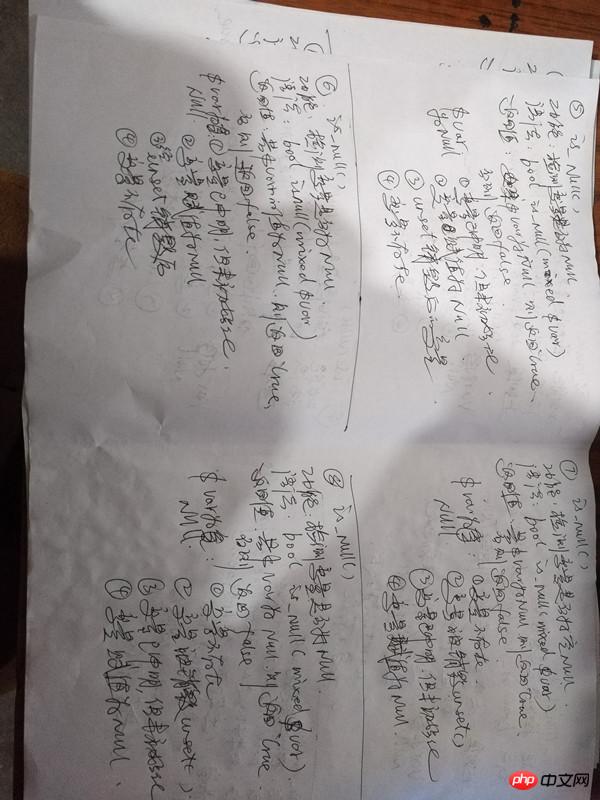 ⑤ is_null()
功能：检测变量是否为Null
语法：bool is_null(mixed $var)
返回值：$var为Null 则返回true
否则返回false
$var为Null
① 变量已申明，但未初始化
② 变量赋值为Null
③ unset销毁后的变量
④ 变量不存在
⑥ is_null()
功能：检测变量是否为Null
语法：bool is_null(mixed $var)
返回值：若 为Null，则返回true，
否则返回false.
$var为Null
① 变量已申明，但未初始化；
② 变量赋值为Null
③ unset销毁后
④ 变量不存在
⑦ is_null()
功能：检测变量是否为 Null.
语法：bool is_null(mixed $var)
返回值：若 $var为Null则返回true.
否则返回false
$var为Null
① 变量不存在
② 变量被销毁unset()
③ 变量已申明但未初始化
④ 变量赋值为Null.
⑧ is_null()
功能：检测变量是否为Null.
语法：bool is_null(mixed $var).
返回值：若 var为Null.则返回true
否则返回false
$var为Null
① 变量不存在
② 变量被销毁unset().
③ 变量已申明，但未初始化
④ 变量赋值为Null.
php 中文网